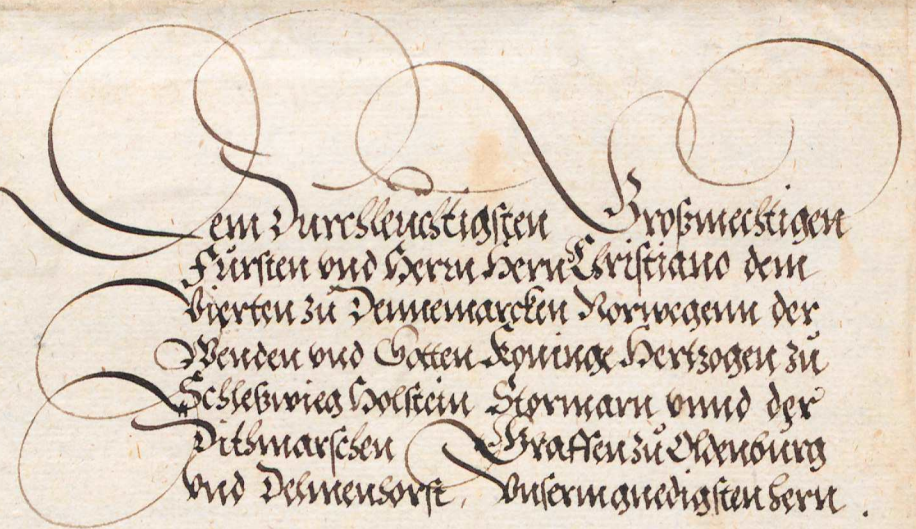 Dem Durchleuchtigsten Großmechtigen
Fürsten vnd Herrn Hern Christiano dem
Vierten zu Dennemarcken Norwegenn der
Wenden vnd Gotten Koninge Hertzogen zu
Schleßwieg Holstein Stormarn vnnd der
Dithmarschen Graffen zu Oldenburg
vnd Delmenhorst, Vnserm gnedigsten hern.